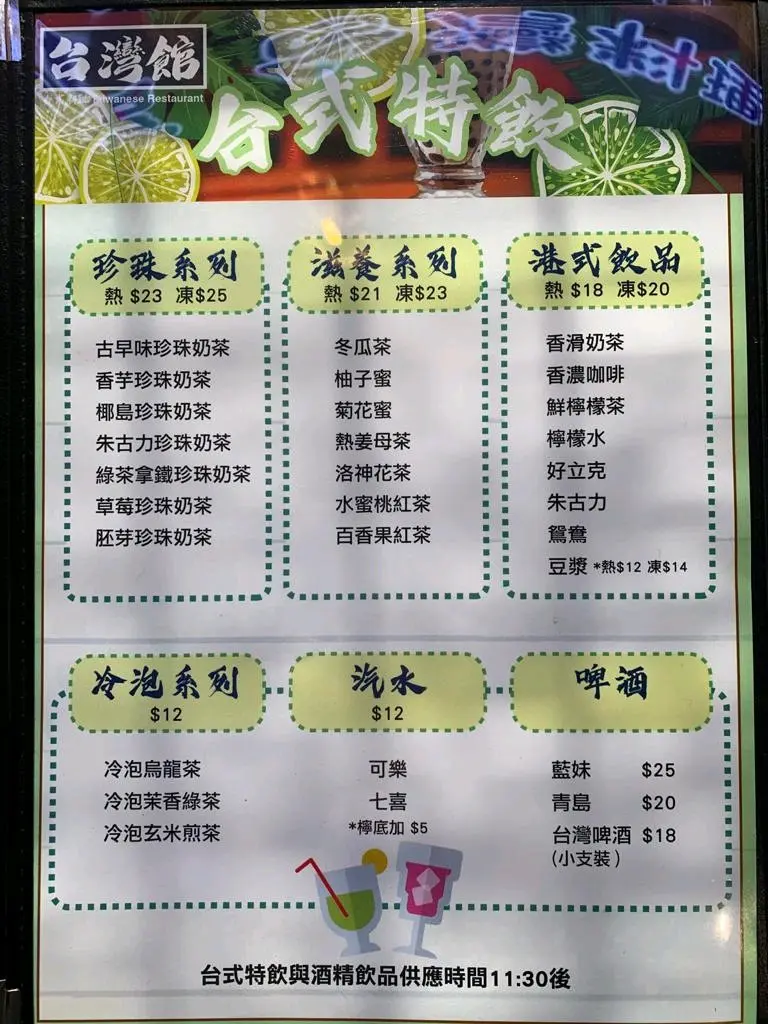 台灣館
Taiwanese Restaurant
台式特飲
珍珠系列
熱 $23 凍$25
古早味珍珠奶茶
香芋珍珠奶茶
椰島珍珠奶茶
朱古力珍珠奶茶
綠茶拿鐵珍珠奶茶
草莓珍珠奶茶
胚芽珍珠奶茶
滋養系列
熱 $21 凍$23
冬瓜茶
柚子蜜
菊花蜜
熱姜母茶
洛神花茶
水蜜桃紅茶
百香果紅茶
港式飲品
熱 $18 凍$20
香滑奶茶
香濃咖啡
鮮檸檬茶
檸檬水
好立克
朱古力
鴛鴦
豆漿 *熱$12 凍$14
冷泡系列
$12
冷泡烏龍茶
冷泡茉香綠茶
冷泡玄米煎茶
汽水
$12
可樂
七喜
*檸底加 $5
啤酒
藍妹 $25
青島 $20
台灣啤酒 $18
(小支裝)
台式特飲與酒精飲品供應時間11:30後